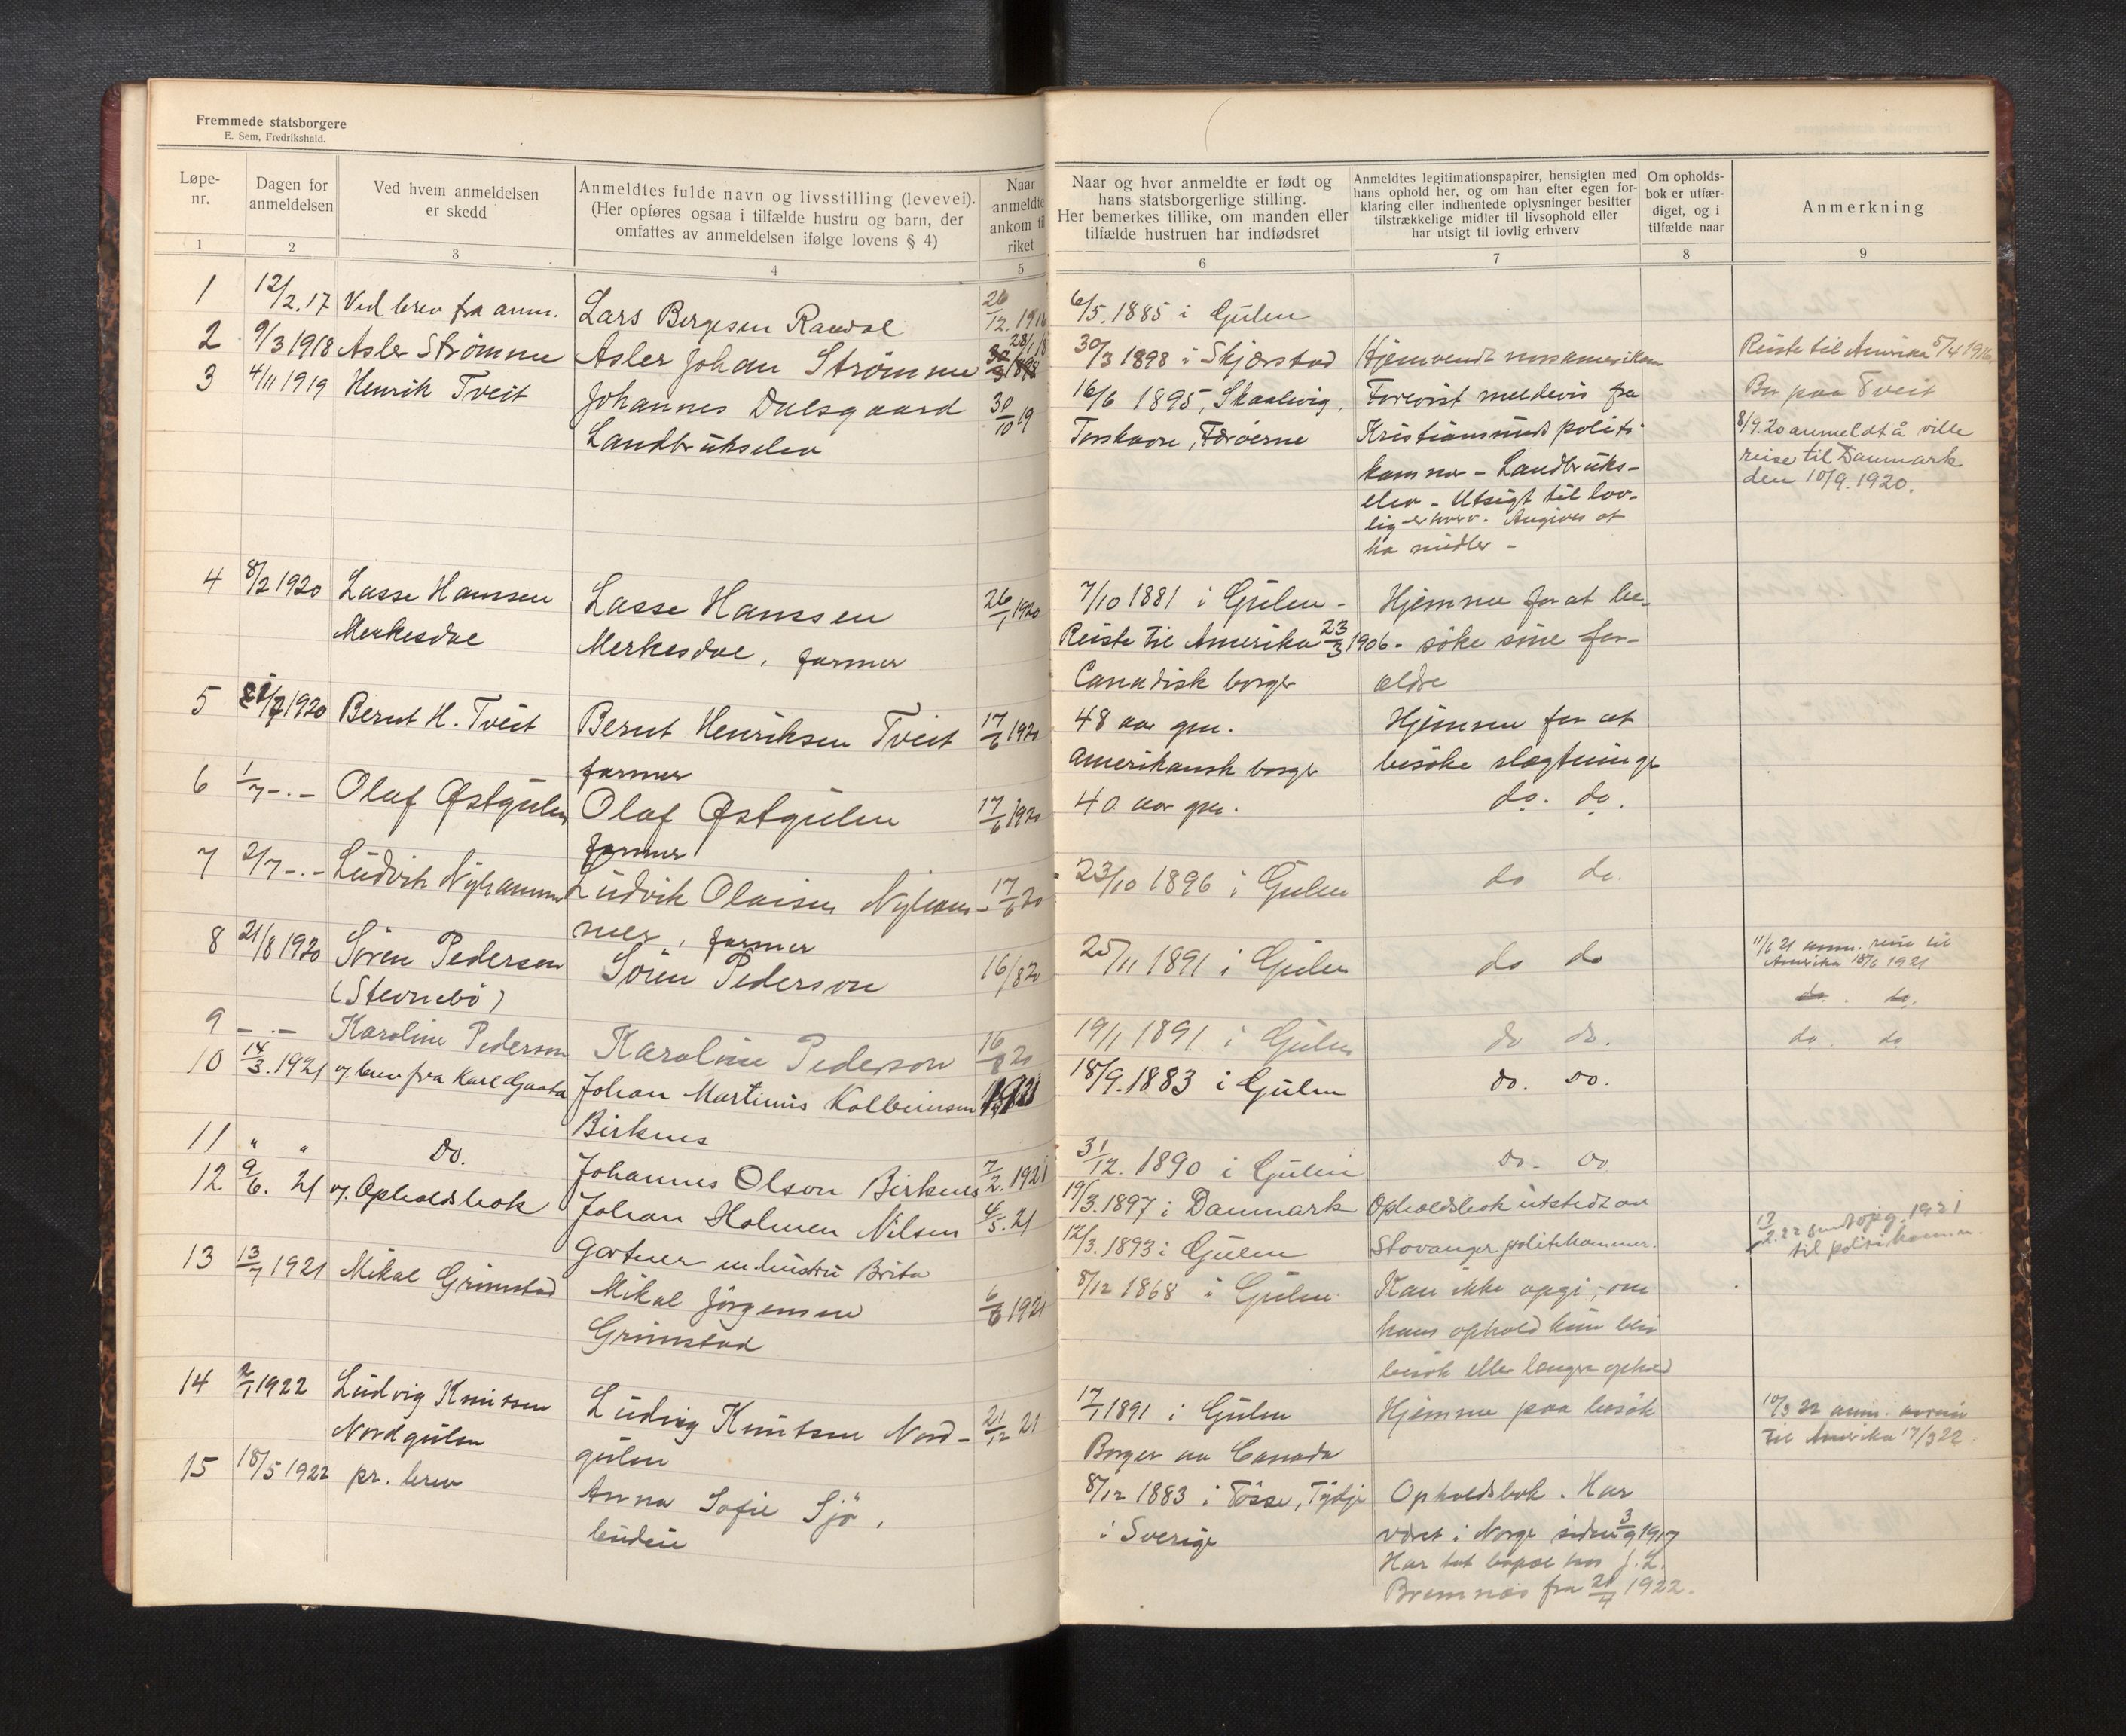 Fremmede statsborgere
E. Sem, Fredrikshald.
Løpe-
nr.
Dagen for
anmeldelsen
Ved hvem anmeldelsen
er skedd
Anmeldtes fulde navn og livsstilling (levevei).
(Her opføres ogsaa i tilfælde hustru og barn, der
omfattes av anmeldelsen ifølge lovens § 4)
Naar
anmeldte
ankom til
riket
Naar og hvor anmeldte er født og
hans statsborgerlige stilling.
Her bemerkes tillike, om manden eller
tilfælde hustruen har indfødsret
Anmeldtes legitimationspapirer, hensigten med
hans ophold her, og om han efter egen for-
klaring eller indhentede oplysninger besitter
tilstrækkelige midler til livsophold eller
har utsigt til lovlig erhverv
Om opholds-
bok er utfær-
diget, og i
tilfælde naar
Anmerkning
1 2 3 4 5 6 7 8 9
1 12/2.17 Ved brev fra anm. Lars Bergesen Randal 26/12.1916 6/5.1885 i Gulen
2 9/3 1918 Asler Strømme Asler Johan Strømme 30/3 1898 i Skjerstad Hjemvendt Reiste til Amerika
3 4/11 1919 Henrik Tveit Johannes Dalsgaard 30/10 19 16/6 1895, Skaalevig, Forevist meldevis fra Bor paa Tveit
Landbrukselev Torshavn, Færøerne Kristiansunds politi- 8/9.20 anmeldt å ville
kammer - Landbruks- reise til Danmark
elev - Utsigt til lov- den 10/9.1920.
lig erhverv. Angives at
ha midler -
4 8/2 1920 Lasse Hanssen Lasse Hanssen 26/1 1920 7/10 1881 i Gulen - Hjemme for at be-
Merkesdal Merkesdal, farmer Reiste til Amerika 23/3 1906 - søke sine for-
Canadisk borger ældre
5 1920 Bernt H. Tveit Bernt Henriksen Tveit 17/6 1920 48 aar gm. Hjemme for at
farmer amerikansk borger besøke slegtninge
6 1/7 -.- Olaf Østgulen Olaf Østgulen 17/6 1920 40 aar gm. do. do.
farmer
7 2/7 -.- Ludvik Nyhammer Ludvik Olaisen Nyham- 17/6 20 23/10 1896 i Gulen do do.
mer, farmer
8 21/8 1920 Søren Pedersen Søren Pederson 16/8 20 25/11 1891 i Gulen do do 11/6 21 anm. reise til
(Stevnebø) Amerika 18/6 1921
do. do.
9 -.- Karoline Pederson Karoline Pederson 16/8 20 19/1 1891 i Gulen do do. do. do
10 14/3.1921 v. brev fra Karl Johan Martinus Kolbeinsen 1921 18/9.1883 i Gulen do. do.
Birknes
11 " " Do. Johannes Olson Birknes 7/2.1921 31/12.1890 i Gulen do. do
12 9/6. 21 v. Opholdsbok Johan Holmen Nilsen 4/5.21 19/3.1897 i Danmark Opholdsbok utstedt av
Gartner m. hustru Brita 12/3.1893 i Gulen Stavanger politikammer. til politikammer
13 13/7 1921 Mikal Grimstad Mikal Jörgensen 6/6 1921 8/12 1868 i Gulen Kan ikke opgi, om
Grimstad hans ophold kun blir
besøk eller længer ophold
14 1922 Ludvig Knutsen Ludvig Knutsen Nord- 21/12 21 17/1 1891 i Gulen Hjemme paa besøk 10/3 22 anm.
Nordgulen gulen Borger av Canada til Amerika 17/3 22
15 18/5 1922 pr. brev Anna Sofie Sjö, 8/12 1883 i Tösse, Opholdsbok. Har
i Sverige været i Norge siden 3/9 1917
Har tat bopæl hos J. L.
Bremnes fra 1922.